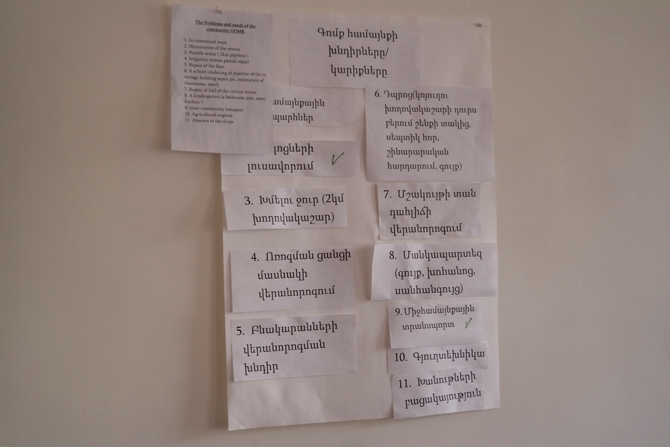 The Problems and needs of the
community GOMK
1. In communal ways
2. Illumination of the streets
3. Potable water ( 2km pipeline )
4. Irrigation system partial repair
5. Repair of the flats
6. A school
7. Repair of hall of the culture house
8. A kindergarten
9. Inter-community transport
10. Agricultural engines
11. Absence of the shops
Գոմք համայնքի
խնդիրները/
կարիքները
լուսավորում ✓
3. Խմելու ջուր (2կմ
խողովակաշար)
4. Ոռոգման ցանցի
մասնակի
վերանորոգում
5. Բնակարանների
վերանորոգման
խնդիր
6. Դպրոց(կոյուղու
խողովակաշարի դուրս
բերում շենքի տակից,
սեպտիկ հոր,
շինարարական
հարդարում, գույք)
7. Մշակույթի տան
դահլիճի
վերանորոգում
8. Մանկապարտեզ
(գույք, խոհանոց,
սանհանգույց)
9. Միջհամայնքային
տրանսպորտ ✓
10. Գյուղտեխնիկա
11. Խանութների
բացակայություն